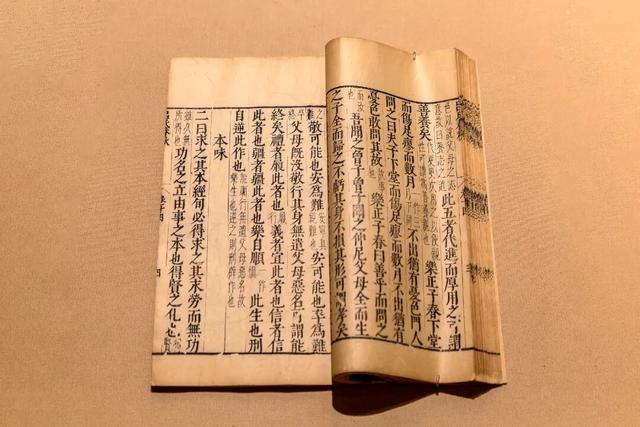 此五者代進而厚用之可謂
善養矣 樂正子春下堂
而傷足瘳而數月不出猶有憂色門人
問之曰夫子下堂而傷足瘳而數月不出猶有
憂色敢問其故 樂正子春曰善乎而問之
吾聞之曾子曾子聞之仲尼父母全而生
之子全而歸之不虧其身不損其形可謂孝矣
敬可能也安爲難 安可能也卒爲難
父母既沒敬行其身無遺父母惡名可謂能
終矣禮者履此者也義者宜此者也信者信
此者也彊者彊此者也樂自順 此生也刑
自逆此作也 能順行無遺父母惡名故樂生也逆之則刑辟作也
本味
二曰求之其本經旬必得求之其末勞而無功
雖久無所得也 功名之立由事之本也得賢之化也
四